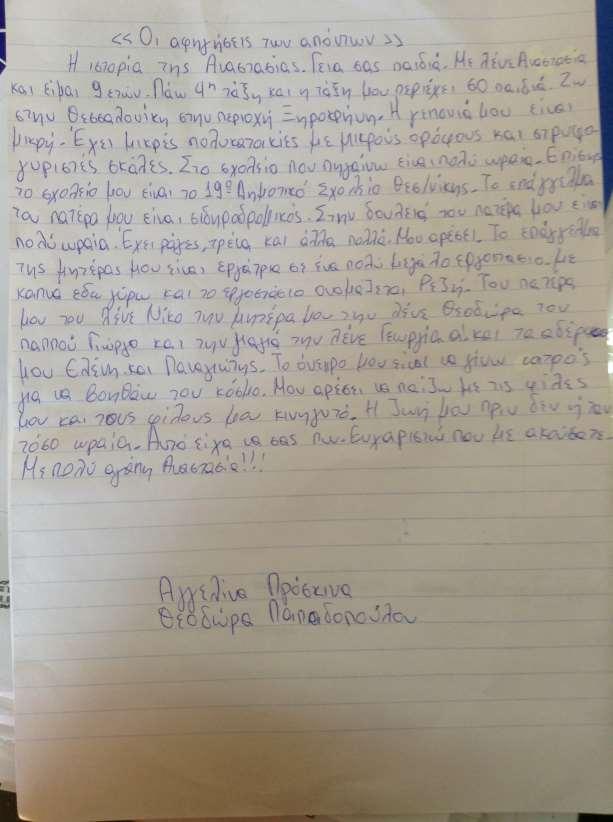 << Οι αφηγήσεις των απόντων >>
Η ιστορία της Αναστασίας. Γεια σας παιδιά. Με λένε Αναστασία
και είμαι 9 ετών. Πάω 4η τάξη και η τάξη μου περιέχει 60 παιδιά. Ζω
στην Θεσσαλονίκη στην περιοχή Ξηροκρήνη. Η γειτονιά μου είναι
μικρή. Έχει μικρές πολυκατοικίες με μικρούς ορόφους και στριφο
γυριστές σκάλες. Στο σχολείο που πηγαίνω είναι πολύ ωραία. Επίσης
το σχολείο μου είναι το 19ο Δημοτικό Σχολείο Θεσ/νίκης. Το επάγγελμα
του πατέρα μου είναι σιδηροδρομικός. Στην δουλειά του πατέρα μου είναι
πολύ ωραία. Έχει ράγες, τρένα και άλλα πολλά. Μου αρέσει. Το επάγγελμα
της μητέρας μου είναι εργάτρια σε ένα πολύ μεγάλο εργοστάσιο με
καπνά εδώ γύρω και το εργοστάσιο ονομάζεται Ρεζή. Του πατέρα
μου τον λένε Νίκο την μητέρα μου την λένε Θεοδώρα τον
παππού Γιώργο και την γιαγιά την λένε Γεωργία και τα αδέρφια
μου Ελένη και Παναγιώτης. Το όνειρο μου είναι να γίνω γιατρός
για να βοηθάω τον κόσμο. Μου αρέσει να παίζω με τις φίλες
μου και τους φίλους μου κυνηγητό. Η ζωή μου πριν δεν ήταν
τόσο ωραία. Αυτά είχα να σας πω. Ευχαριστώ που με ακούσατε.
Με πολύ αγάπη Αναστασία!!!
Αγγελίνα Πρόσκινα
Θεοδώρα Παπαδοπούλου